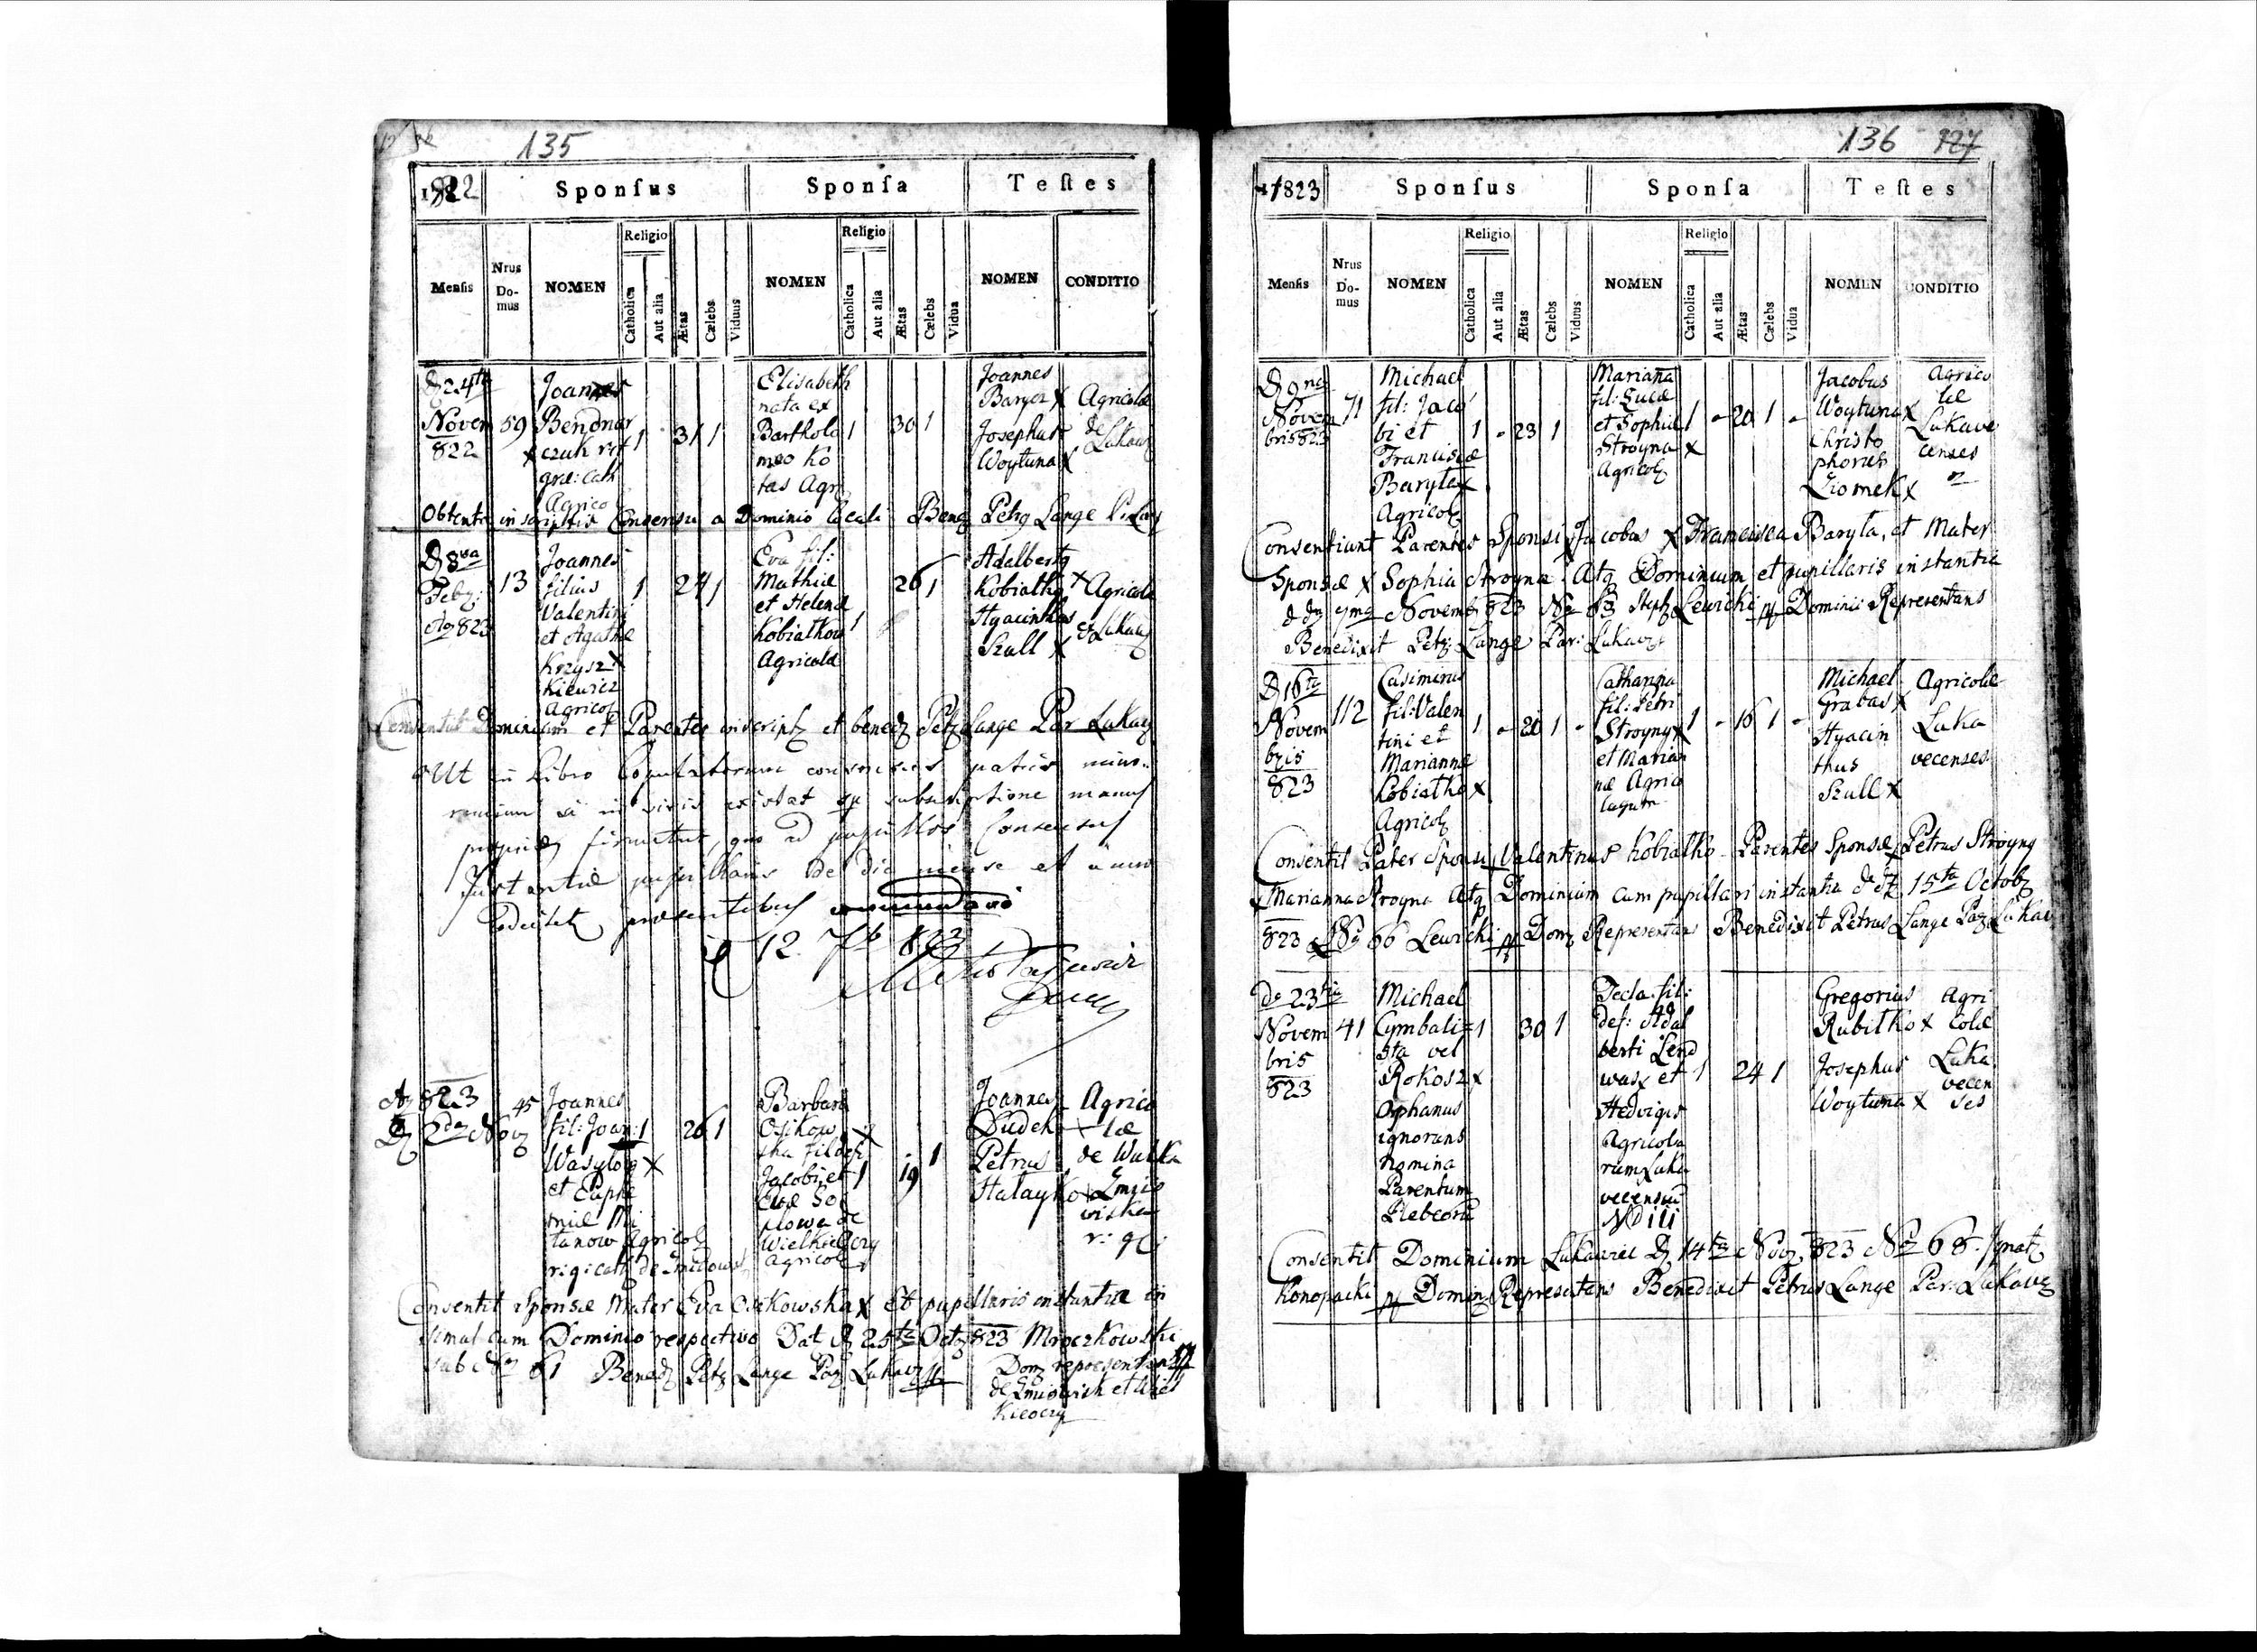 135
1822
Sponſus
Sponſa
Teſtes
Menſis
Nrus Do-mus
NOMEN
Religio
Catholica
Aut alia
Ætas
Cælebs
Viduus
NOMEN
Religio
Catholica
Aut alia
Ætas
Cælebs
Vidua
NOMEN
CONDITIO
D 24ta
Novem
822
59
Joannes
Bendnar
x czuk rit
græ: Cath
Agrico
1
31
1
Elisabeth
nata ex
Bartholo
meo Ko
tas Agr
1
30
1
Joannes
Baryez x
Josephus
Woytuna x
Agricolæ
de
Lukawz
Obtento in scriptis Consensu a Dominio locali Bened Petrg Lange
D 8va
Feb:
Ao 823
13
Joannes
filius
Valentini
et Agathæ
Krzysz x
kiewicz
Agricol
1
24
1
Eva fil:
Mathiæ
et Helenæ
Kobiałkow
Agricola
1
26
1
Adalbertg
Kobiałkg x
Hyacinthus
Szull x
Agricolæ
de Lukawz
Consentit Dominium et Parentes et bened Petrg Lange Par Lukawz
Ut in Libro Copulatorum consensus
existat subscriptione manus
firmetur, quo ad pupillos Consensus
Instantiæ pupillaris de die mense et anno
præsentibus
12. 7b 823
Ao 823
D 2da Nov
45
Joannes
fil: Joan:
Wasylow x
et Euphe
miæ Mi
tanow Agricol
ri g: cath: de
1
26
1
Barbara
Osikow x
ska fil def:
Jacobi et
Evæ So
slowa de
Wielkieoczy
Agricol
1
19
1
Joannes
Dudek +
Petrus
Hatayko +
Agrico
læ
de Wulka
Zmijo
wiska
r: g:
Consentit Sponsæ Mater Eva Osikowska x Et pupillaris instantia in
simul cum Dominio respectivo Dat D 25ta Oct 823 Mroczkowski
sub No 61 Bened Petrg Lange Par Lukawz
Dom representans
de Zmiowisk et Wiel
kieoczy
136 127
1823
Sponſus
Sponſa
Teſtes
Menſis
Nrus Do-mus
NOMEN
Religio
Catholica
Aut alia
Ætas
Cælebs
Viduus
NOMEN
Religio
Catholica
Aut alia
Ætas
Cælebs
Vidua
NOMEN
CONDITIO
D 9na
Novem
bris 823
71
Michael
fil: Jaco
bi et
Franciscæ
Baryła x
Agricol
1
-
23
1
Marianna
fil: Lucæ
et Sophiæ
Stroyna x
Agricol
1
-
20
1
-
Jacobus
Woytuna x
Christo
phorus
Ziomek x
Agrico
læ
Lukave
censes
Consentiunt Parentes Sponsi x Jacobus x Francisca Baryła, et Mater
Sponsæ x Sophia Stroyna Atq Dominium et pupillaris instantia
d d 7ma Novemb 823 No 63 Steph Lewicki Dominii Representans
Benedixit Petr: Lange Par: Lukavz
D 16ta
Novem
bris
823
112
Casimirus
fil: Valen
tini et
Mariannæ
Kobiałko x
Agricol
1
-
20
1
-
Catharina
fil: Petri
Stroyny x
et Marian
næ Agrico
larum
1
-
16
1
-
Michael
Grabas x
Hyacin
thus
Szull x
Agricolæ
Luka
vecenses
Consentit Pater Sponsi x Valentinus Kobiałko Parentes Sponsæ x Petrus Stroyny
x Marianna Stroyna Atq Dominium cum pupillari instantia d d 15ta Octob
823 No 66 Lewicki Dom Representans Benedixit Petrus Lange Par Lukav
D 23tia
Novem
bris
823
41
Michael
Cymbali=
sta vel
Rokosz x
Orphanus
ignorans
nomina
Parentum
Plebeorum
1
30
1
Tecla fil:
def: Adal
berti Lend
was x et
Hedvigis
Agricola
rum Luka
vecensium
1
24
1
Gregorius
Rubitko x
Josephus
Woytuna x
Agri
colæ
Luka
vecen
ses
Consentit Dominium Lukawiec D 14ta Nov 823 No 68. Ignatz
Konopacki Domin Representans Benedixit Petrus Lange Par: Lukavz